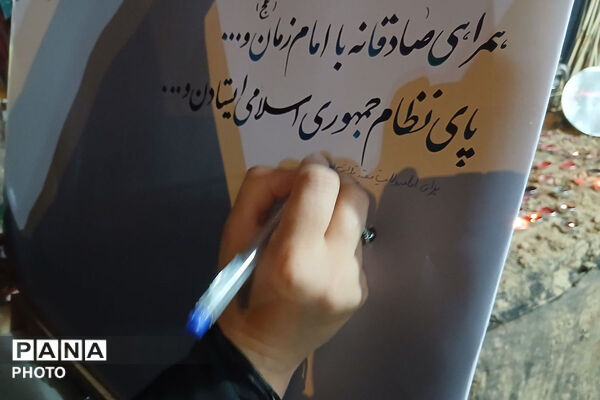 همراهی صادقانه با امام زمان (عج) و...
پای نظام جمهوری اسلامی ایستادن و...
برای
PANA
PHOTO